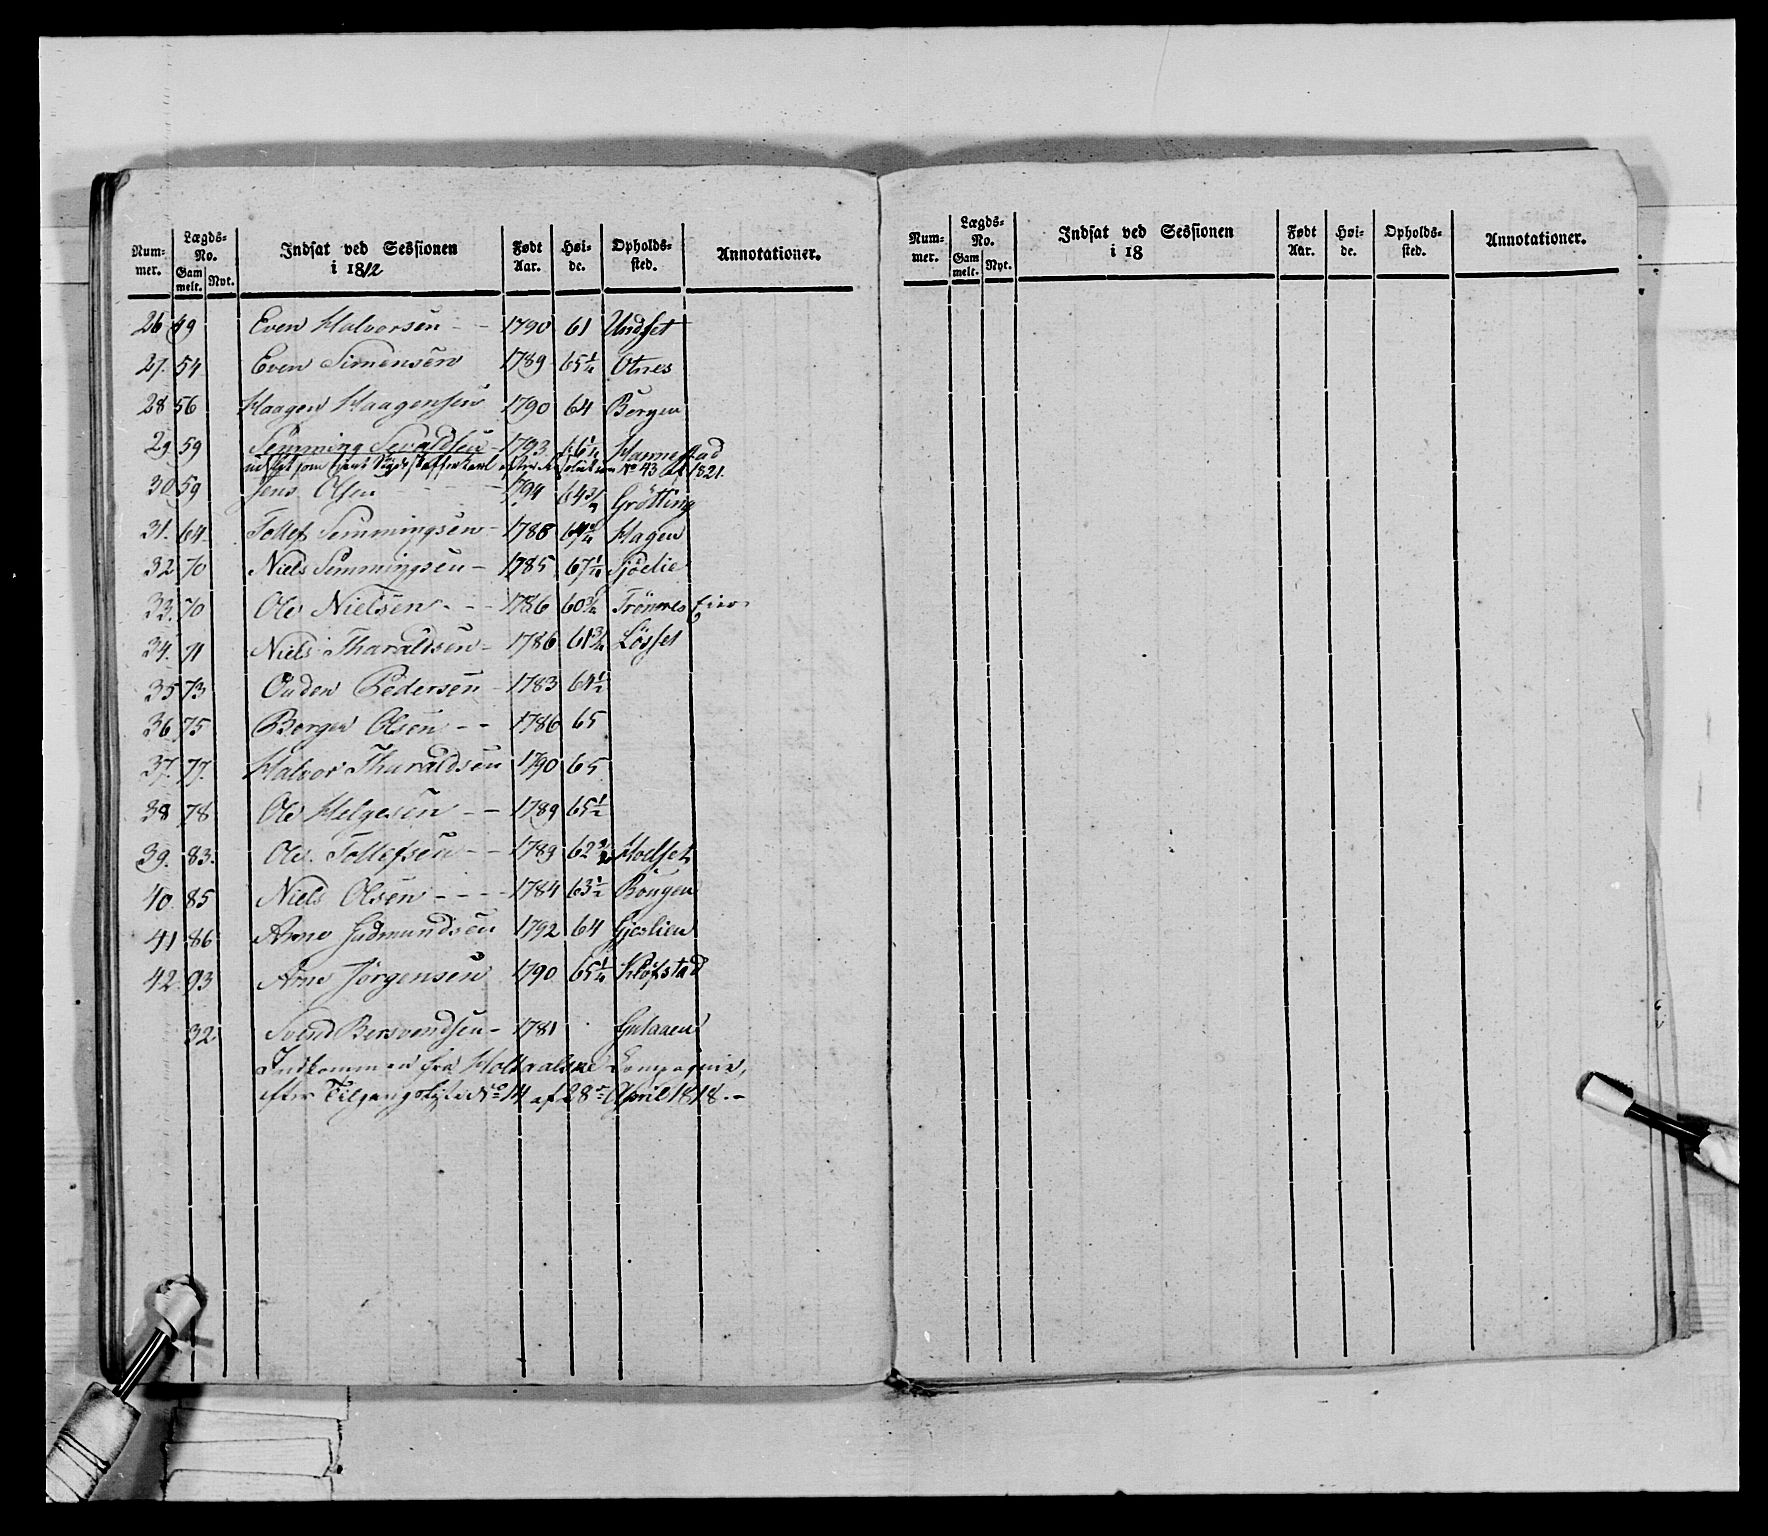 Num-mer. Lægds-No. Gam melt. Nyt. Indsat ved Sessionen i 1812 Født Aar. Høi-de. Opholds-sted. Annotationer.
26 49 Even Halvorsen - - 1790 61 Undset
27. 54 Even Simensen 1789 65 1/4 Otnes
28 56 Haagen Haagensen 1790 64 Bergen
29 59 Semming Sevaldsen - 1793 66 1/4 Hannestad
udslet som No 43 af 1821.
30 59 Jens Olsen - - - 1794 64 3/4 Grötting
31. 64. Tollef Semmingsen - 1788 Hagen
32 70 Niels Semmingsen - 1785 67 1/4 Sjölie
33. 70 Ole Nielsen - - - 1786 60 3/4 Trönnes Eier
34. 71 Niels Tharaldsen - 1786 61 3/4 Lösset
35 73 Ouden Pedersen - 1783 64 1/2
36 75 Berger Olsen - - 1786 65
37. 77. Halvor Tharaldsen 1790 65
38 78 Ole Helgesen - - 1789 65 1/2
39. 83. Ole Tollefsen - - 1789 62 3/4 Moelset
40 85 Niels Olsen - - - - 1784 63 1/2
41 86 Arne Gudmundsen 1792 64 Gjeslien
42. 93 Arne Jörgensen 1790 65 1/4 Kløfstad
32 Svend Bersvendsen - 1781 Gulaaen
Indkommen fra Holtaalske Compagnie,
efter Tilgangsliste No 14 af 28de April 1818. -
Num-mer. Lægds-No. Gam melt. Nyt. Indsat ved Sessionen i 18 Født Aar. Høi-de. Opholds-sted. Annotationer.